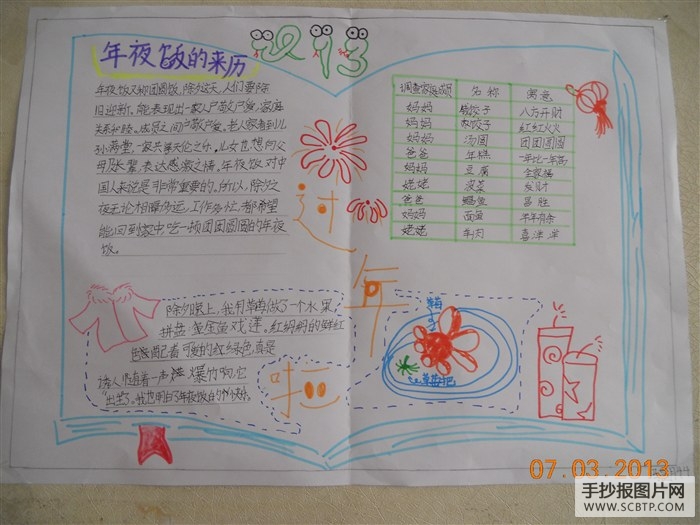 年夜饭的来历
2013
年夜饭又称团圆饭,除夕这天,人们要除
旧迎新。能表现出一家人户敬户爱,家庭
关系和睦。成员之间户敬户爱。老人家看到儿
孙满堂一家共享天伦之乐。儿女也想向父
母及长辈,表达感激之情。年夜饭对中
国人来说是非常重要的。所以,除夕之
夜无论相隔多远,工作多忙,都希望
能回到家中吃一顿团团圆圆的年夜
饭。
调查家庭成员 名称 寓意
妈妈 饺子 八方开财
妈妈 饺子 红红火火
妈妈 汤圆 团团圆圆
爸爸 年糕 一年比一年高
妈妈 豆腐 全家福
姥姥 发菜 发财
爸爸 昌胜
妈妈 面鱼 年年有余
姥姥 羊肉 喜洋洋
过
年
啦
除夕晚上,我用草莓做了一个水果
拼盘 金鱼戏莲,红妈妈的鲜红
可爱的红绿色真是
诱人 随着一声 爆竹响它
草莓
07.03.2013
手抄报图片网
WWW.SCBTP.COM